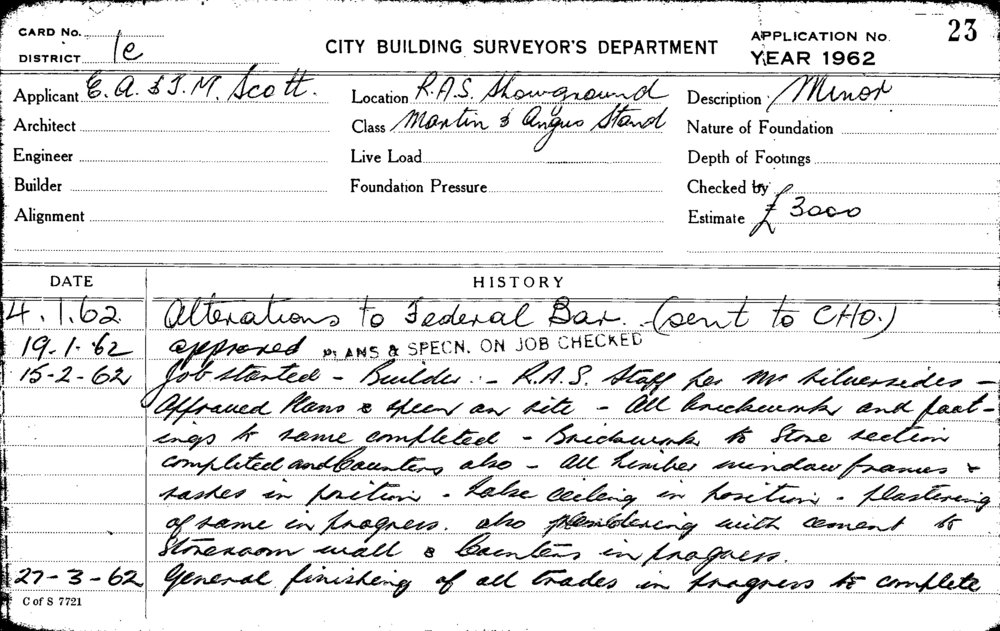 CARD No.
DISTRICT 1e
CITY BUILDING SURVEYOR'S DEPARTMENT
APPLICATION No. 23
YEAR 1962
Applicant E. A. & T. M. Scott.
Location R.A.S. Showground
Description Minor
Architect
Class Martin & Angus Stand
Nature of Foundation
Engineer
Live Load
Depth of Footings
Builder
Foundation Pressure
Checked by
Alignment
Estimate £ 3000
DATE HISTORY
4.1.62 Alterations to Federal Bar. (sent to CHO.)
19.1.62 approved PLANS & SPECN. ON JOB CHECKED
15-2-62 Job started - Builder :- R.A.S. Staff per Mr Silversides -
Approved Plans & specn on site - All brickwork and foot-
ings to same completed - Brickwork to Store section
completed and Counters also - All timber window frames &
sashes in position - False ceiling in position - plastering
of same in progress. also rendering with cement to
Storeroom wall & Counters in progress.
27-3-62 General finishing of all trades in progress to complete
C of S 7721